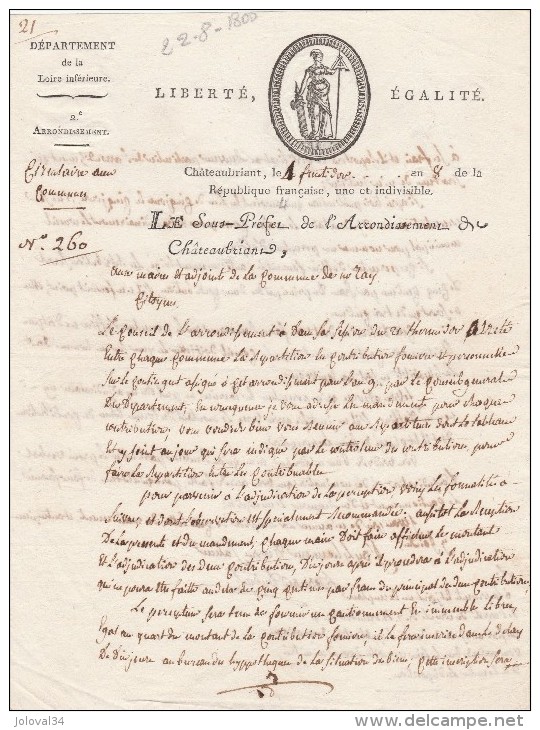 21
22-8-1800
DÉPARTEMENT
de la
Loire inférieure.
2.e
ARRONDISSEMENT.
LIBERTÉ, ÉGALITÉ.
Circulaire aux
Communes
N.o 260
Châteaubriant, le 4 fructidor en 8 de la
République française, une et indivisible.
LE Sous-Préfet de l'Arrondissement de
Châteaubriant,
aux maire et adjoint de la Commune de nozay
Citoyens
Le Conseil de l'arrondissement a dans sa session du thermidor arreté
Entre chaque Commune la repartition des Contributions fonciere et personnelle
Sur le contingent assigné a cet arrondissement pour l'an 9 par le Conseil general
Du Departement, En consequence je vous adresse un mandement pour chaque
contribution, vous voudrez bien vous reunir aux Repartiteurs dont le tableau
Est y joint au jour qui sera indiqué par le controleur des contributions, pour
faire la Repartition entre les Contribuables.
pour parvenir a l'adjudication de la perception voicy les formalités a
Suivre et dont l'observation est specialement recommandée. aussitot la Reception
De la presente et du mandement, chaque maire Doit faire afficher le montant
Et l'adjudication des deux Contributions, Dix jours après il procedera a l'adjudication
qui ne poura etre faitte audela de cinq centimes par franc du principal des deux Contributions,
Le percepteur sera tenu de fournir un cautionnement En immeuble libre,
Egal au quart du montant de la contribution fonciere, il le fera inscrire dans le delay
De dix jours au bureau des hypotheques de la situation des biens, cette inscription sera
joloval34
www.delcampe.net